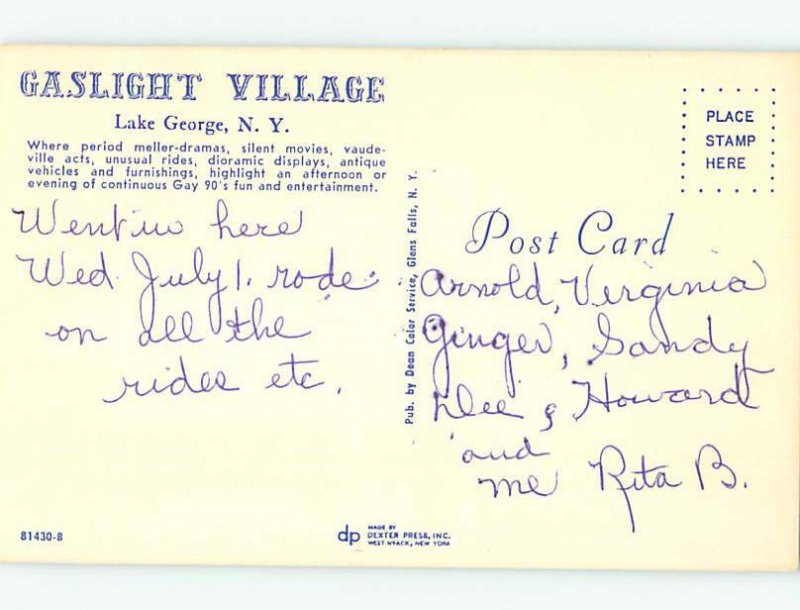 GASLIGHT VILLAGE
Lake George, N. Y.
Where period meller-dramas, silent movies, vaude-
ville acts, unusual rides, dioramic displays, antique
vehicles and furnishings, highlight an afternoon or
evening of continuous Gay 90's fun and entertainment.
Went in here
Wed. July 1. rode
on all the
rides etc.
Pub. by Dean Color Service, Glens Falls, N. Y.
PLACE
STAMP
HERE
Post Card
Arnold, Virginia
Ginger, Sandy
Dee & Howard
and
me Rita B.
81430-B
dp
MADE BY
DEXTER PRESS, INC.
WEST NYACK, NEW YORK